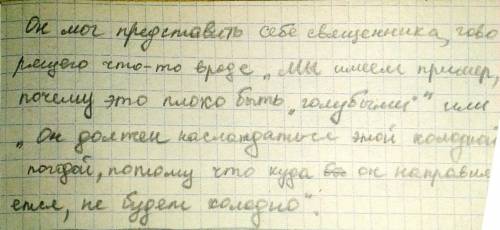 Он мог представить себе священника, гово
рящего что-то вроде „Мы имеем пример,
почему это плохо быть „голубыми"" или
„Он должен наслаждаться этой холодной
погодой, потому что куда он направля
ется, не будет холодно".